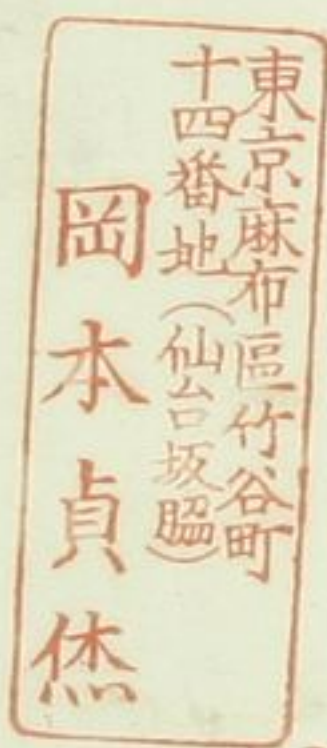 東京麻布區竹谷町
十四番地(仙台坂脇)
岡本貞烋